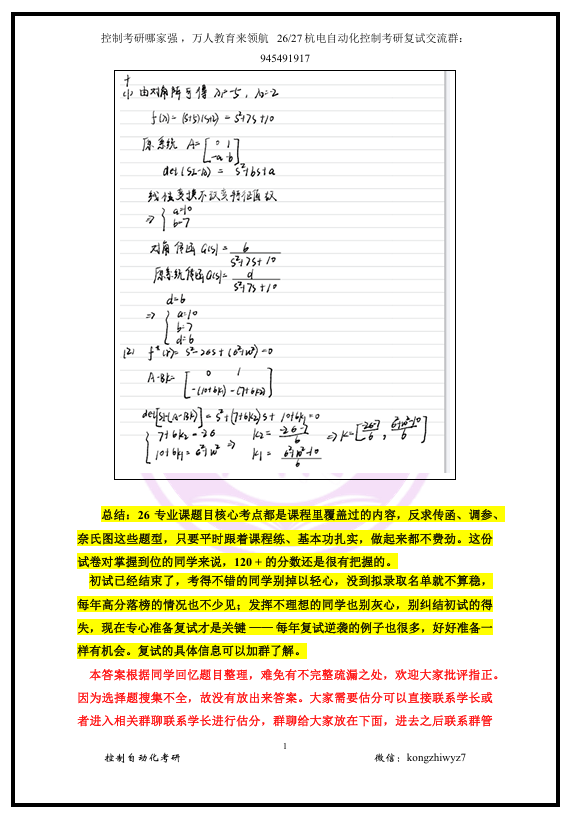 控制考研哪家强，万人教育来领航 26/27 杭电自动化控制考研复试交流群：
945491917
十
(1) 由对角阵可得 λ₁=-5，λ₂=-2
f(λ)=(s+5)(s+2)=s²+7s+10
原系统 A=[0 1
-a -b]
det(sI-A)=s²+bs+a
线性变换不改变特征函数
⇒ { a=10
b=7
对角传函G(s)= 6/(s²+7s+10)
原系统传函G(s)= d/(s²+7s+10)
d=6
⇒ { a=10
b=7
d=6
(2) f*(s)=s²-2σs+(σ²+w²)=0
A-BK=[0 1
-(10+6k₁) -(7+6k₂)]
det[sI-(A-BK)]=s²+(7+6k₂)s+10+6k₁=0
{ 7+6k₂=-2σ ⇒ k₂= (-2σ-7)/6 ⇒ K=[(-2σ-7)/6, (σ²+w²-10)/6]
10+6k₁=σ²+w² k₁= (σ²+w²-10)/6
总结：26 专业课题目核心考点都是课程里覆盖过的内容，反求传函、调参、
奈氏图这些题型，只要平时跟着课程练、基本功扎实，做起来都不费劲。这份
试卷对掌握到位的同学来说，120 + 的分数还是很有把握的。
初试已经结束了，考得不错的同学别掉以轻心，没到拟录取名单就不算稳，
每年高分落榜的情况也不少见；发挥不理想的同学也别灰心，别纠结初试的得
失，现在专心准备复试才是关键 —— 每年复试逆袭的例子也很多，好好准备一
样有机会。复试的具体信息可以加群了解。
本答案根据同学回忆题目整理，难免有不完整疏漏之处，欢迎大家批评指正。
因为选择题搜集不全，故没有放出来答案。大家需要估分可以直接联系学长或
者进入相关群聊联系学长进行估分，群聊给大家放在下面，进去之后联系群管
1
控制自动化考研 微信：kongzhiwyz7